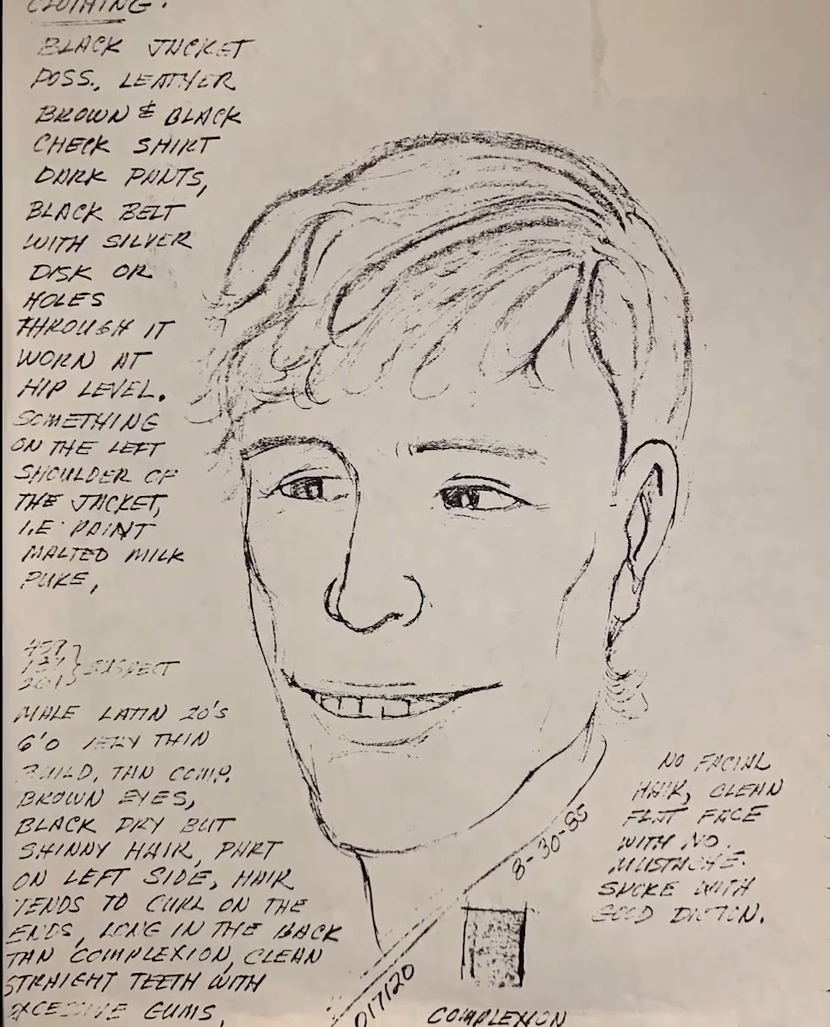 CLOTHING.
BLACK JACKET
POSS., LEATHER
BROWN & BLACK
CHECK SHIRT
DARK PANTS,
BLACK BELT
WITH SILVER
DISK OR
HOLES
THROUGH IT
WORN AT
HIP LEVEL.
SOMETHING
ON THE LEFT
SHOULDER OF
THE JACKET,
I.E PAINT
MALTED MILK
PUKE,
SUSPECT
MALE LATIN 20's
6'0 VERY THIN
BUILD, TAN COMP.
BROWN EYES,
BLACK DRY BUT
SHINNY HAIR, PART
ON LEFT SIDE, HAIR
TENDS TO CURL ON THE
ENDS, LONG IN THE BACK
TAN COMPLEXION, CLEAN
STRAIGHT TEETH WITH
EXCESSIVE GUMS,
NO FACIAL
HAIR, CLEAN
FLAT FACE
WITH NO.
MUSTACHE.
SPOKE WITH
GOOD DICTON.
8-30-85
017120
COMPLEXION